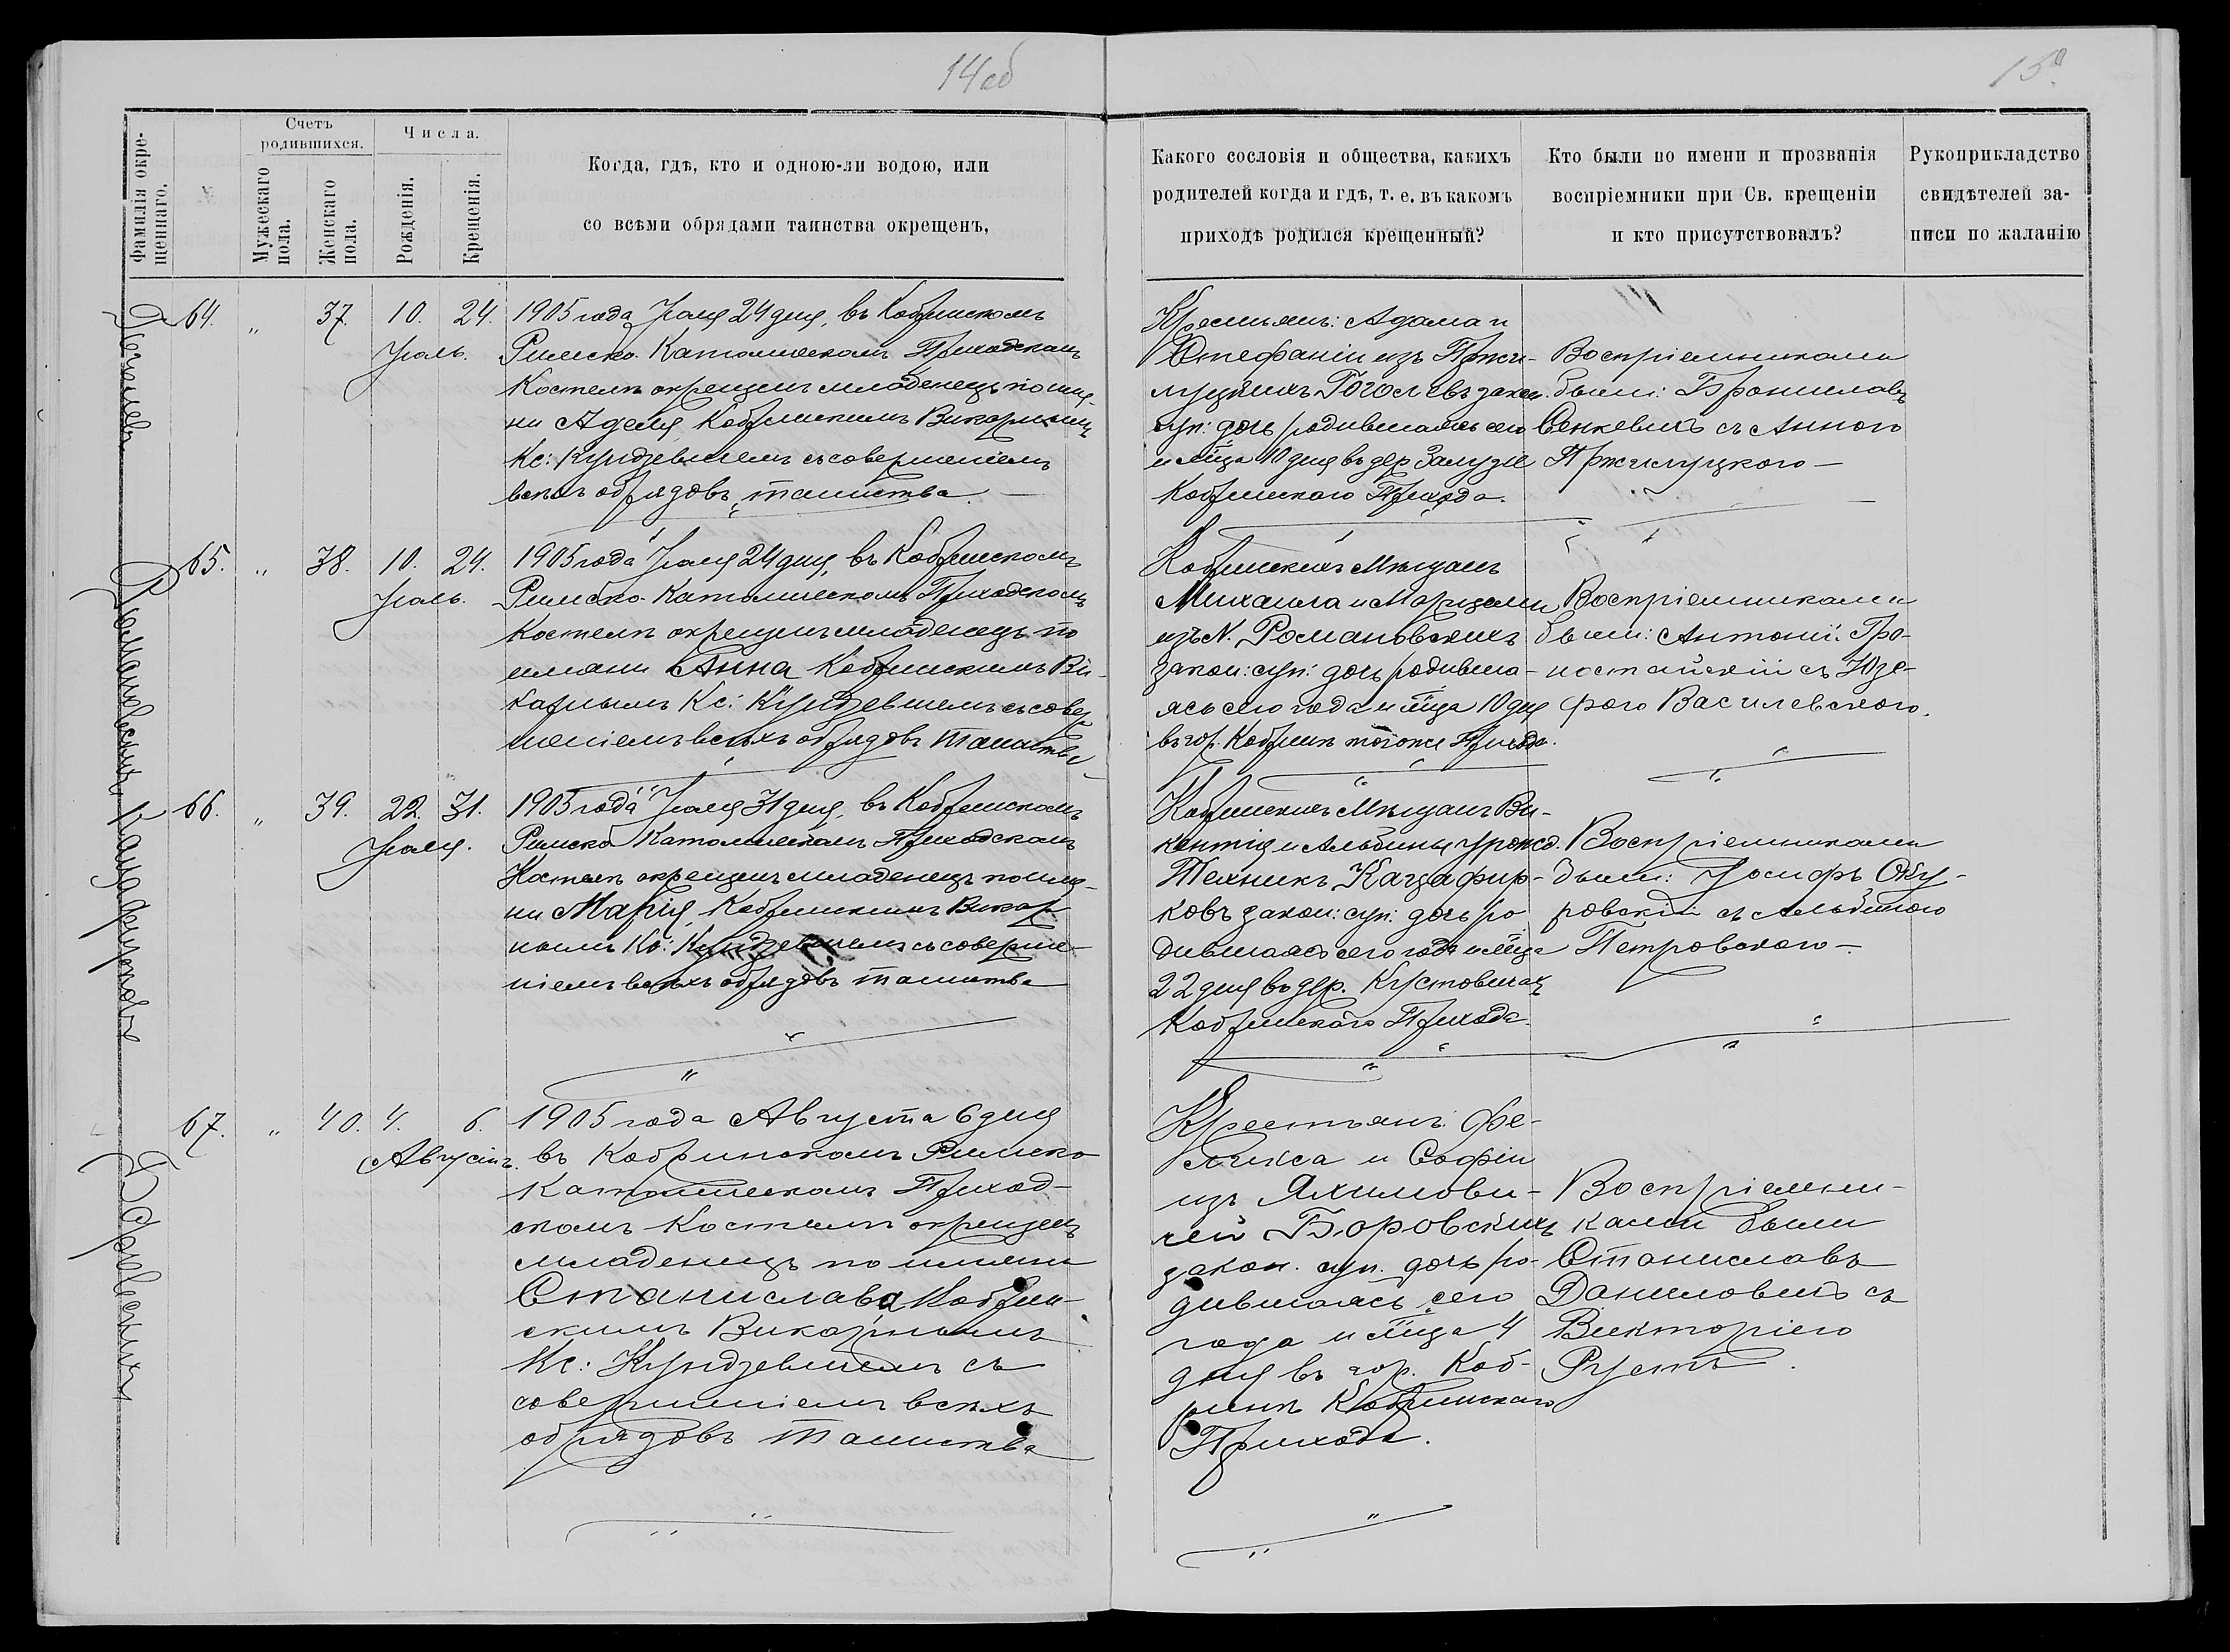 14об
Фамилія окре-
щеннаго.
№
Счетъ
родившихся.
Мужескаго
пола.
Женскаго
пола.
Числа.
Рожденія.
Крещенія.
Когда, гдѣ, кто и одною-ли водою, или
со всѣми обрядами таинства окрещенъ,
Гоголевъ
64. " 37. 10. 24.
Іюль.
1905 года Іюля 24 дня, въ Кобринскомъ
Римско-Католическомъ Приходскомъ
Костелѣ окрещенъ младенецъ по име-
ни Аделя, Кобринскимъ Викарнымъ
Кс: Кундзевичемъ съ совершеніемъ
всѣхъ обрядовъ таинства. —
Романовскихъ
65. " 38. 10. 24.
Іюль.
1905 года Іюля 24 дня, въ Кобринскомъ
Римско-Католическомъ Приходскомъ
Костелѣ окрещенъ младенецъ по
имени Анна Кобринскимъ Ви-
карнымъ Кс: Кундзевичемъ съ совер
шеніемъ всѣхъ обрядовъ таинства
66. " 39. 22. 31.
Іюля.
1905 года Іюля 31 дня, въ Кобринскомъ
Римско Католическомъ Приходскомъ
Костелѣ окрещенъ младенецъ по име-
ни Марія, Кобринскимъ Викар
нымъ Кс: Кундзевичемъ съ соверше-
ніемъ всѣхъ обрядовъ таинства
Боровскихъ
67. " 40. 4. 6.
Августъ.
1905 года Августа 6 дня
въ Кобринскомъ Римско
Католическомъ Приход-
скомъ Костелѣ окрещенъ
младенецъ по имени
Станислава Кобрин-
скимъ Викарнымъ
Кс: Кундзевичемъ съ
совершеніемъ всѣхъ
обрядовъ таинства
15
Какого сословія и общества, какихъ
родителей когда и гдѣ, т. е. въ какомъ
приходѣ родился крещенный?
Кто были по имени и прозванія
воспріемники при Св. крещеніи
и кто присутствовалъ?
Рукоприкладство
свидѣтелей за-
писи по жаланію
Крестьянъ: Адама и
Стефаніи изъ Пржи-
луцкихъ Гоголевъ закон.
суп: дочь родившаяся сего
мѣсца 10 дня въ дер Залузье
Кобринскаго Прихода.
Воспріемниками
были: Брониславъ
Сенкевичъ съ Анною
Пржилуцкою —
Кобринскихъ Мѣщанъ
Михаила и Марцели
изъ N. Романовскихъ
закон: суп: дочь родивша-
ясь сего года и мѣсца 10 дня
въ гор. Кобринѣ тогоже Прихода.
Воспріемниками
были: Антоній Гро-
ностайскій съ Юзе-
фою Василевскою.
Кобринскихъ Мѣщанъ Ви-
кентія и Альбины урожд.
закон: суп: дочь ро
дившаяся сего года и мѣсца
22 дня въ дер. Кустовичахъ
Кобринскаго Прихода.
Воспріемниками
были: Іосифъ Оку-
ровскій съ Альбиною
Петровскою —
Крестьянъ: Фе-
ликса и Софіи
изъ Яхимови-
чей Боровскихъ
закон. суп. дочь ро-
дившаясь сего
года и мѣсца 4
дня въ гор. Коб-
ринѣ Кобринскаго
Прихода.
Воспріемни-
ками были
Станиславъ
Даниловичъ съ
Викторіею